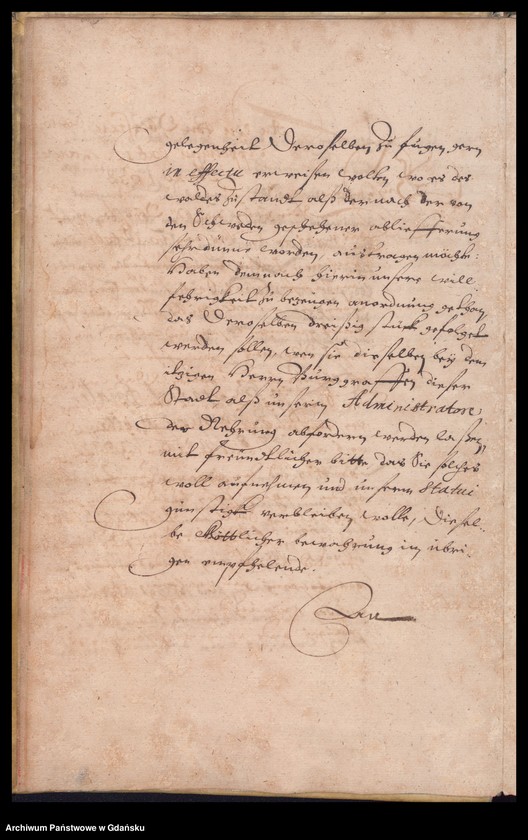 gelegenheit Deroselben zu fugen gern
in effectu erweisen wolten, wo es des
waldes zustandt alß der nach der von
den Schweden geschehener ablieferung
sehr dunne worden, austragen möchte:
Haben demnach hierin unsere will
fehrigkeit zu bezeugen anordnung gethan,
das Deroselben dreißig stück gefolget
werden sollen, wen sie dieselben bey dem
itzigen Herrn Burggraffen dieser
Stadt alß unserm Administratore
der Nehrung abfordern werden laßen,
mit freundtlicher bitte das Sie solches
woll aufnehmen und unserm Statui
gunstig verbleiben wolle, Diesel-
be Göttlicher bewahrung im ubri-
gen empfhelende.
An
Archiwum Państwowe w Gdańsku